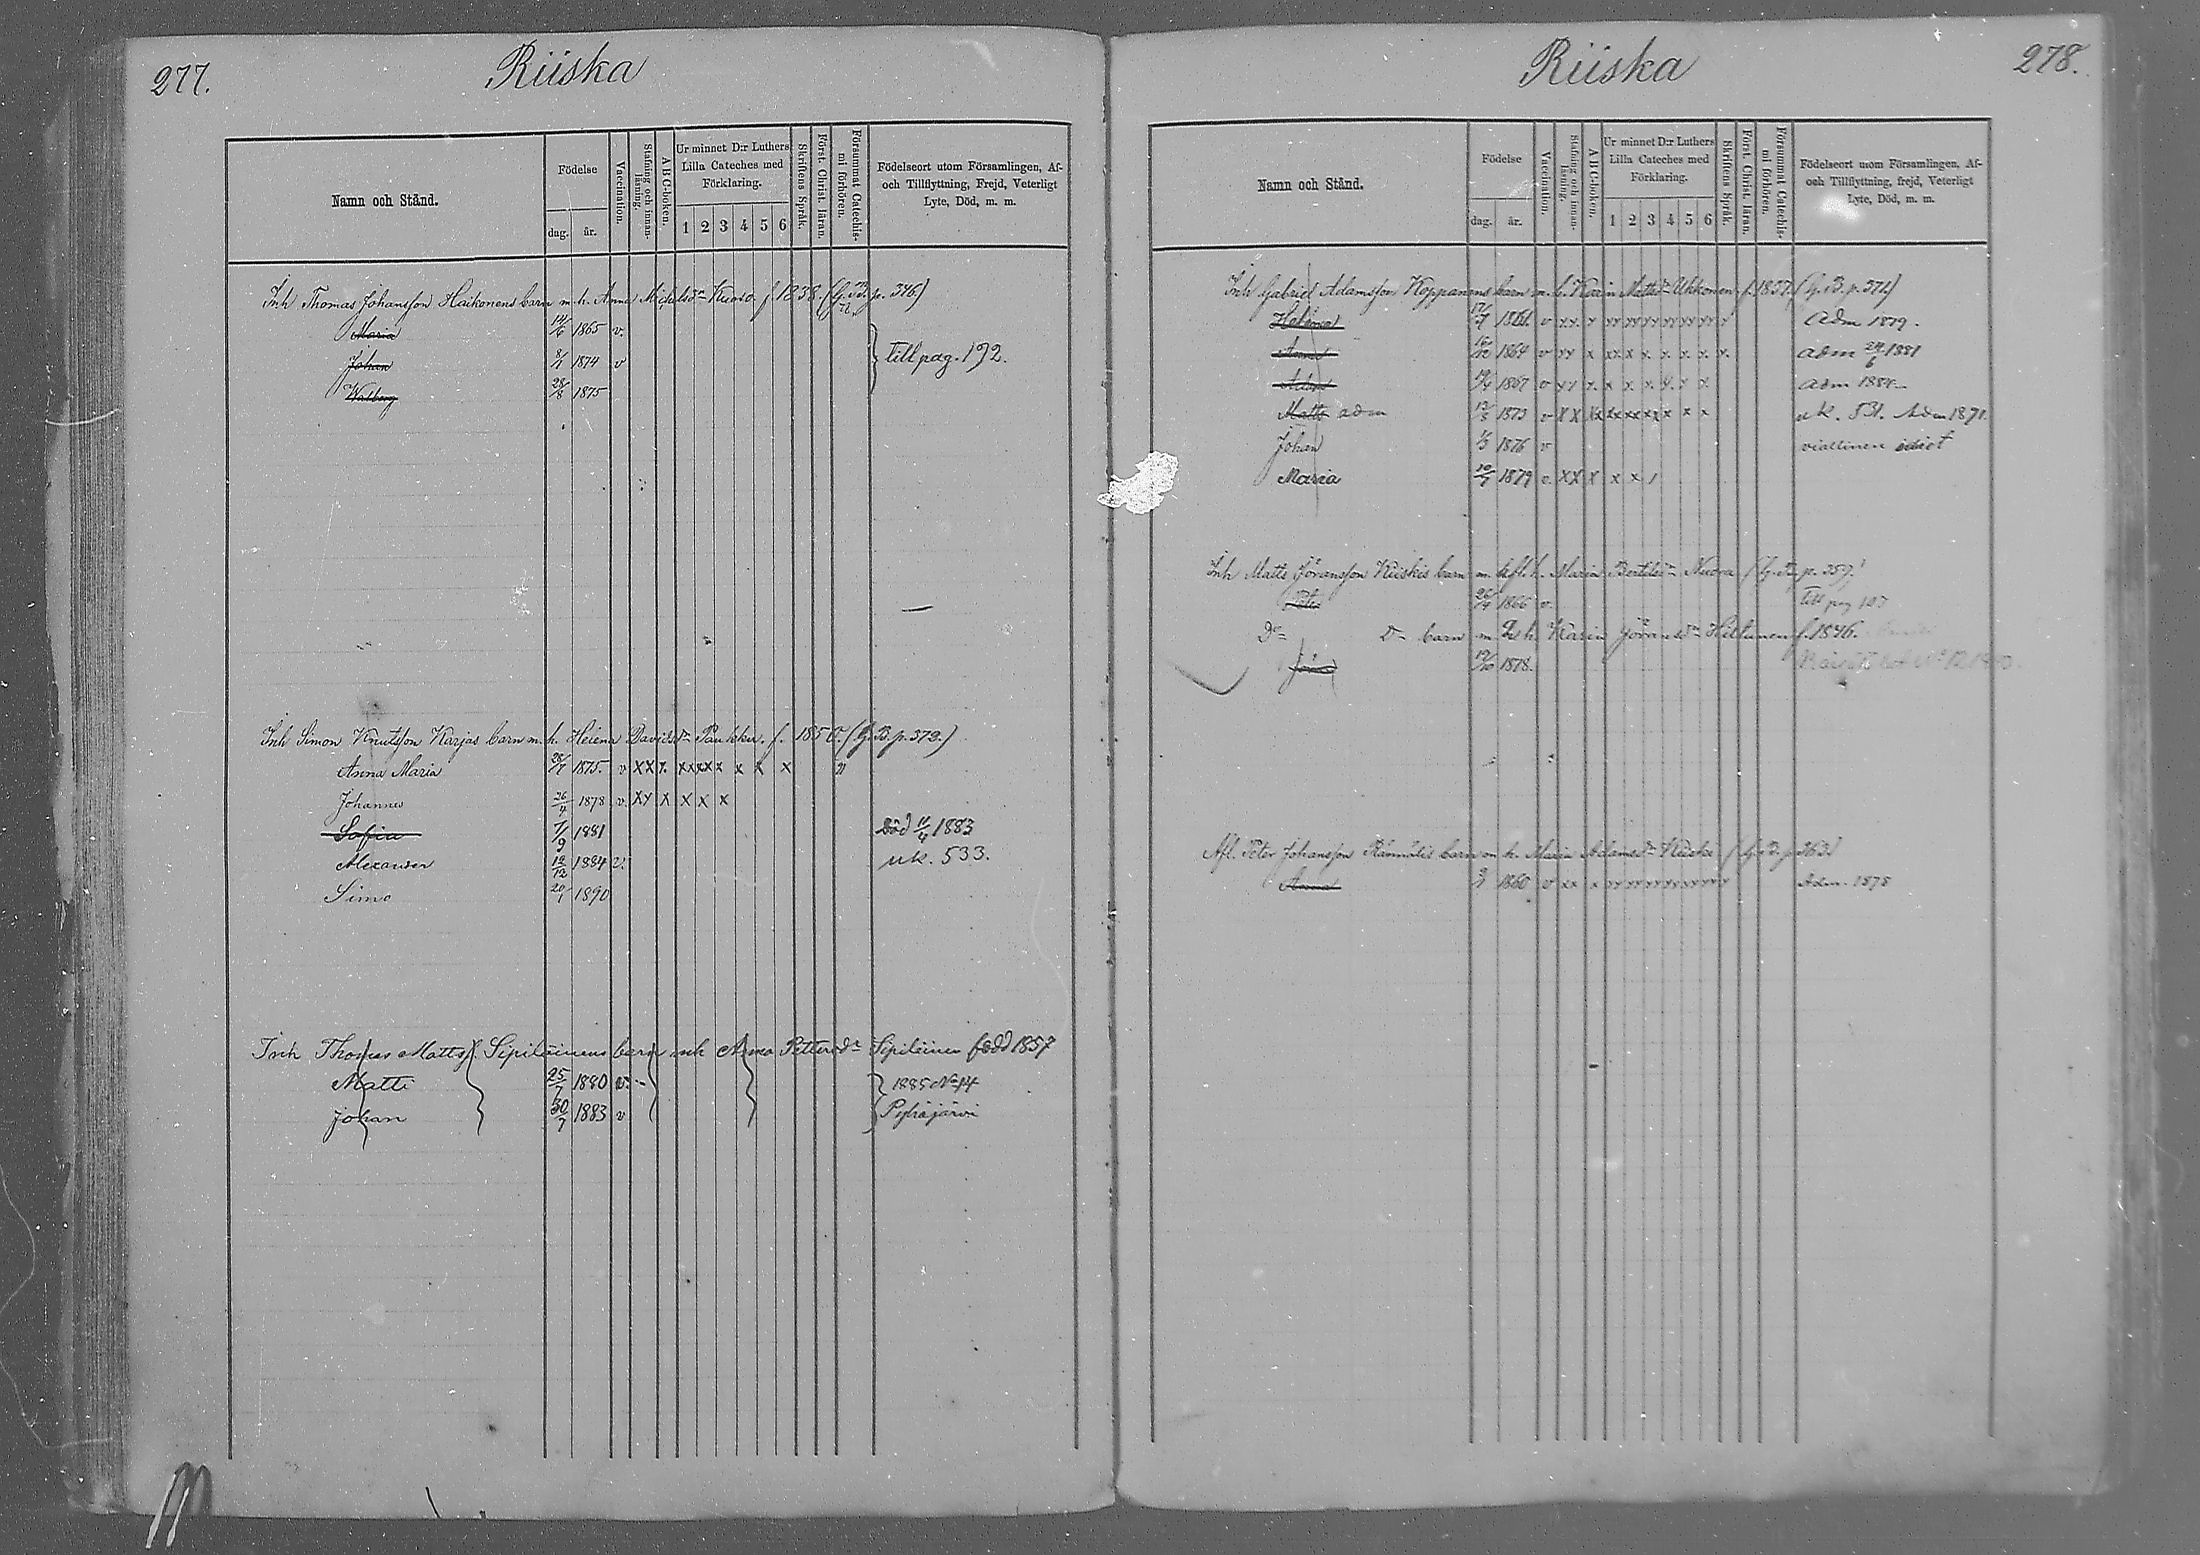 277.
Riiska
Namn och Stånd.
Födelse
dag.
år.
Vaccination.
Stafning och innan-läsning.
A B C-boken.
Ur minnet D:r Luthers
Lilla Cateches med
Förklaring.
1 2 3 4 5 6
Skriftens Språk.
Först. Christ. läran.
Försummat Catechis-mi förhören.
Födelseort utom Församlingen, Af-
och Tillflyttning, Frejd, Veterligt
Lyte, Död, m. m.
Inh Thomas Johansson Haikonens barn m. h. Anna Michelsdr Kuoso f. 1838. (G.B. p. 346)
Maria 14/6 1865 v.
Johan 8/1 1874 v till pag. 192.
Walborg 28/8 1875
Inh Simon Knutsson Karjas barn m. h. Helena Davidsdr Paukku f. 1850. (G.B. p. 373.)
Anna Maria 28/7 1875. v x x x. x x x x x x x x
Johannes 26/4 1878 v. x x x x x x
Sofia 7/9 1881 död 11/4 1883
Alexander 12/12 1884 v. uk. 533.
Simo 20/1 1890
Inh Thomas Mattss Sipiläinens barn mh Anna Pettersdr Sipiläinen född 1857
Matti 25/7 1880 v. 1885 No 14
Johan 30/7 1883 v Pyhäjärvi
Riiska
278.
Namn och Stånd.
Födelse
dag.
år.
Vaccination.
Stafning och innan-läsning.
A B C-boken.
Ur minnet D:r Luthers
Lilla Cateches med
Förklaring.
1 2 3 4 5 6
Skriftens Språk.
Först. Christ. läran.
Försummat Catechis-mi förhören.
Födelseort utom Församlingen, Af-
och Tillflyttning, frejd, Veterligt
Lyte, Död, m. m.
Inh Gabriel Adamsson Koppanens barn m. h. Karin Mattsdr Ukkonen f. 1837. (G.B. p. 371)
Helena 1861 v Adm 1879.
Anna 1864 v adm 24/6 1881
Adam 1867 v adm 1884
Matts adm 1873 v uk. 531. Adm 1891.
Johan 1/3 1876 v viallinen idiot
Maria 1879 v. x x x x x
Inh Matts Göransson Kiiskis barn m. h. Maria Bertilsdr Nuora (G.B. p. 357.)
Peter 26/4 1866 v. till pag 107
Do Do barn m. 2 h. Karin Göransdr Hiltunen f. 1846.
1878.
Afl. Peter Johansson barn m. h. Maria Adamsdr Kiiski (G.B. p. 363)
Anna 1860 v Adm. 1878